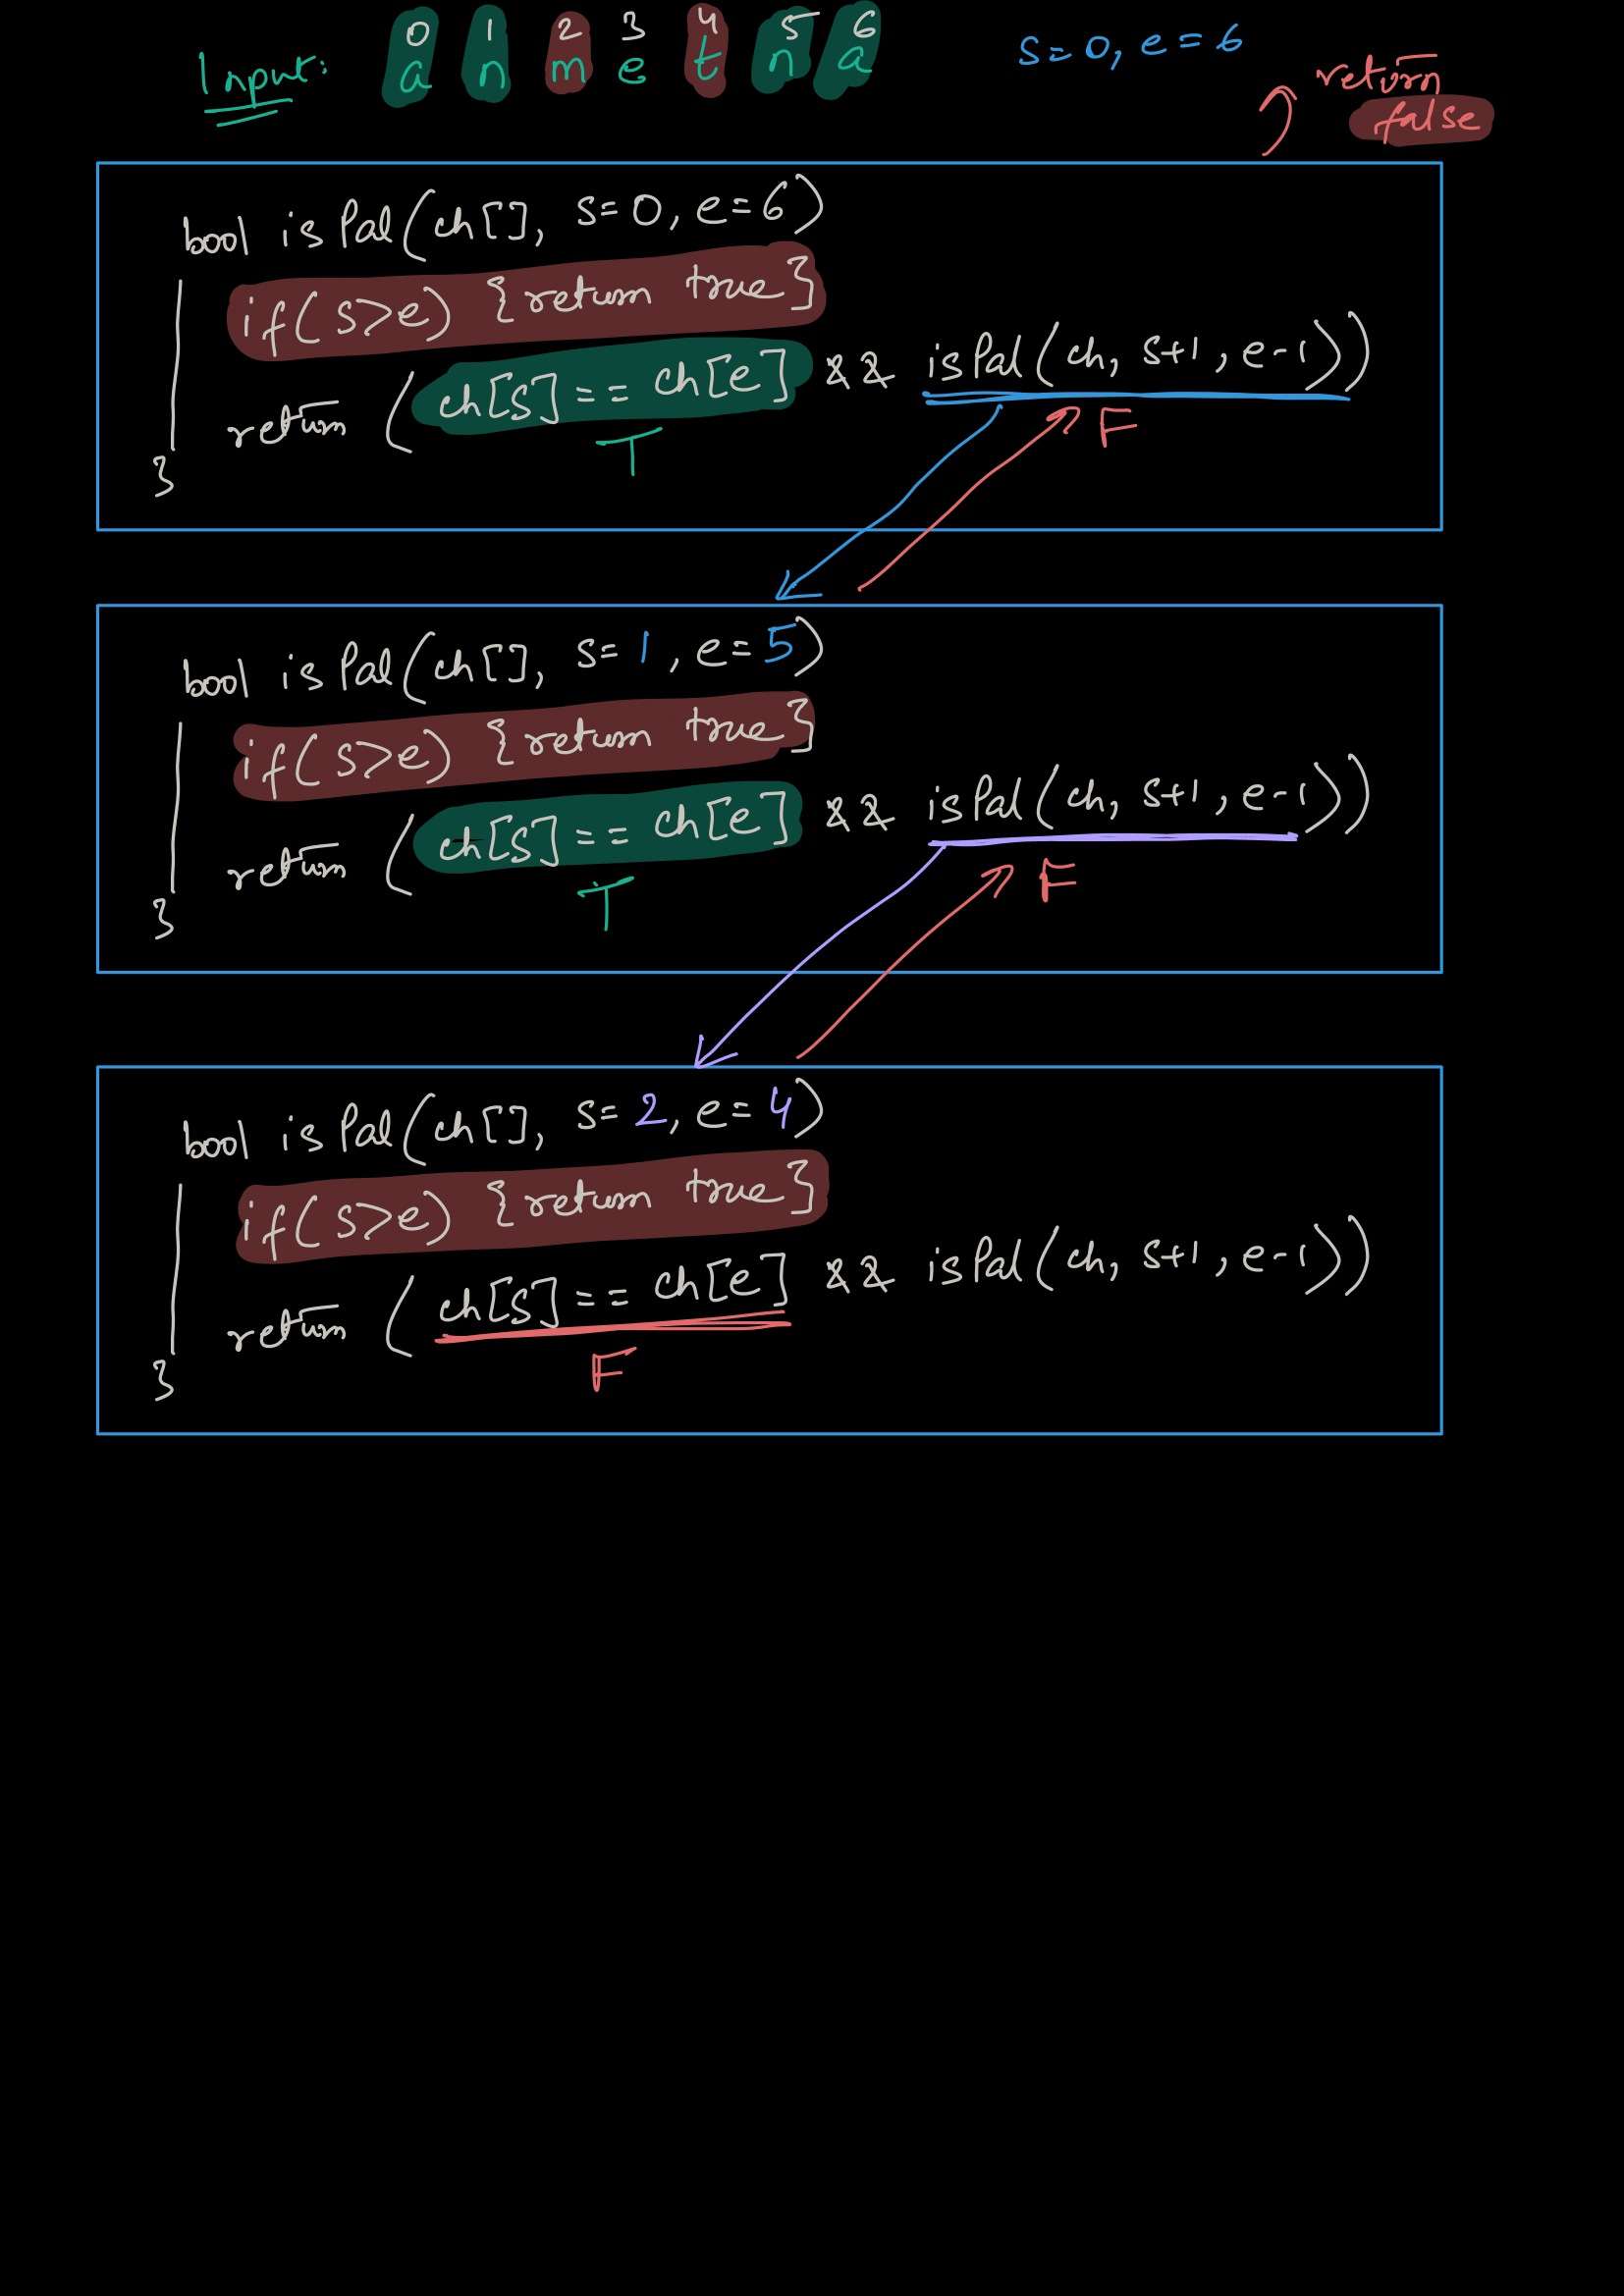 0 1 2 3 4 5 6
Input: a n m e t n a
s=0, e=6
return
false
bool isPal(ch[], s=0, e=6)
if(s>e) {return true}
return (ch[s]==ch[e] && isPal(ch, s+1, e-1))
T
F
}
bool isPal(ch[], s=1, e=5)
if(s>e) {return true}
return (ch[s]==ch[e] && isPal(ch, s+1, e-1))
T
F
}
bool isPal(ch[], s=2, e=4)
if(s>e) {return true}
return (ch[s]==ch[e] && isPal(ch, s+1, e-1))
F
}